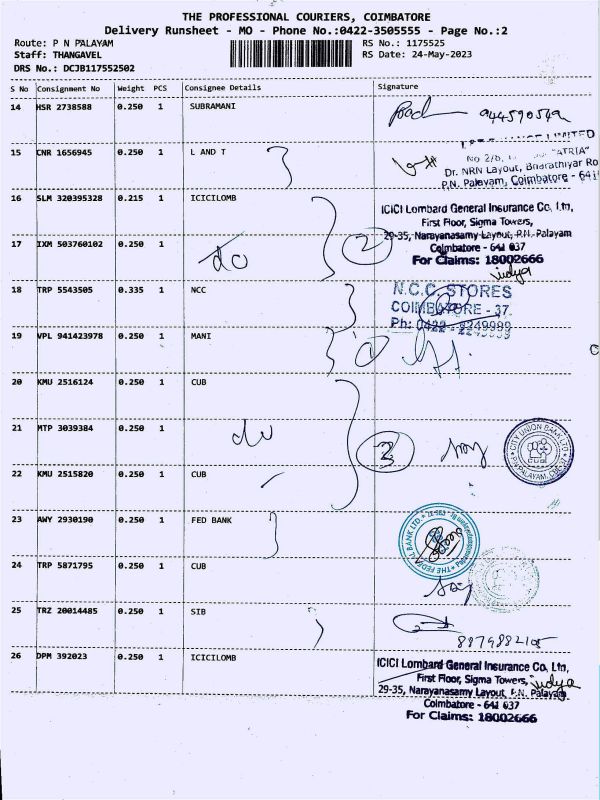 THE PROFESSIONAL COURIERS, COIMBATORE
Delivery Runsheet - MO - Phone No.:0422-3505555 - Page No.:2
Route: P N PALAYAM
Staff: THANGAVEL
DRS No.: DCJB117552502
RS No.: 1175525
RS Date: 24-May-2023
S No Consignment No Weight PCS Consignee Details Signature
14 HSR 2738588 0.250 1 SUBRAMANI
15 CNR 1656945 0.250 1 L AND T
LIMITED
No 2/6, "ATRIA"
Dr. NRN Layout, Bharathiyar Ro
P.N. Palayam, Coimbatore - 641
16 SLM 320395328 0.215 1 ICICILOMB
ICICI Lombard General Insurance Co. Ltd,
First Floor, Sigma Towers,
29-35, Narayanasamy Layout, P.N. Palayam
Coimbatore - 641 037
For Claims: 18002666
17 IXM 503760102 0.250 1 do 2
vidya
18 TRP 5543505 0.335 1 NCC
N.C.C. STORES
COIMBATORE - 37.
Ph: 0422 - 2249999
19 VPL 941423978 0.250 1 MANI 1
20 KMU 2516124 0.250 1 CUB
21 MTP 3039384 0.250 1 do 3
CITY UNION BANK LTD
P.N PALAYAM, CBE-37
22 KMU 2515820 0.250 1 CUB
23 AWY 2930190 0.250 1 FED BANK
THE FEDERAL BANK LTD.
24 TRP 5871795 0.250 1 CUB
25 TRZ 20014485 0.250 1 SIB
26 DPM 392023 0.250 1 ICICILOMB
ICICI Lombard General Insurance Co. Ltd,
First Floor, Sigma Towers, vidya
29-35, Narayanasamy Layout, P.N. Palayam
Coimbatore - 641 037
For Claims: 18002666